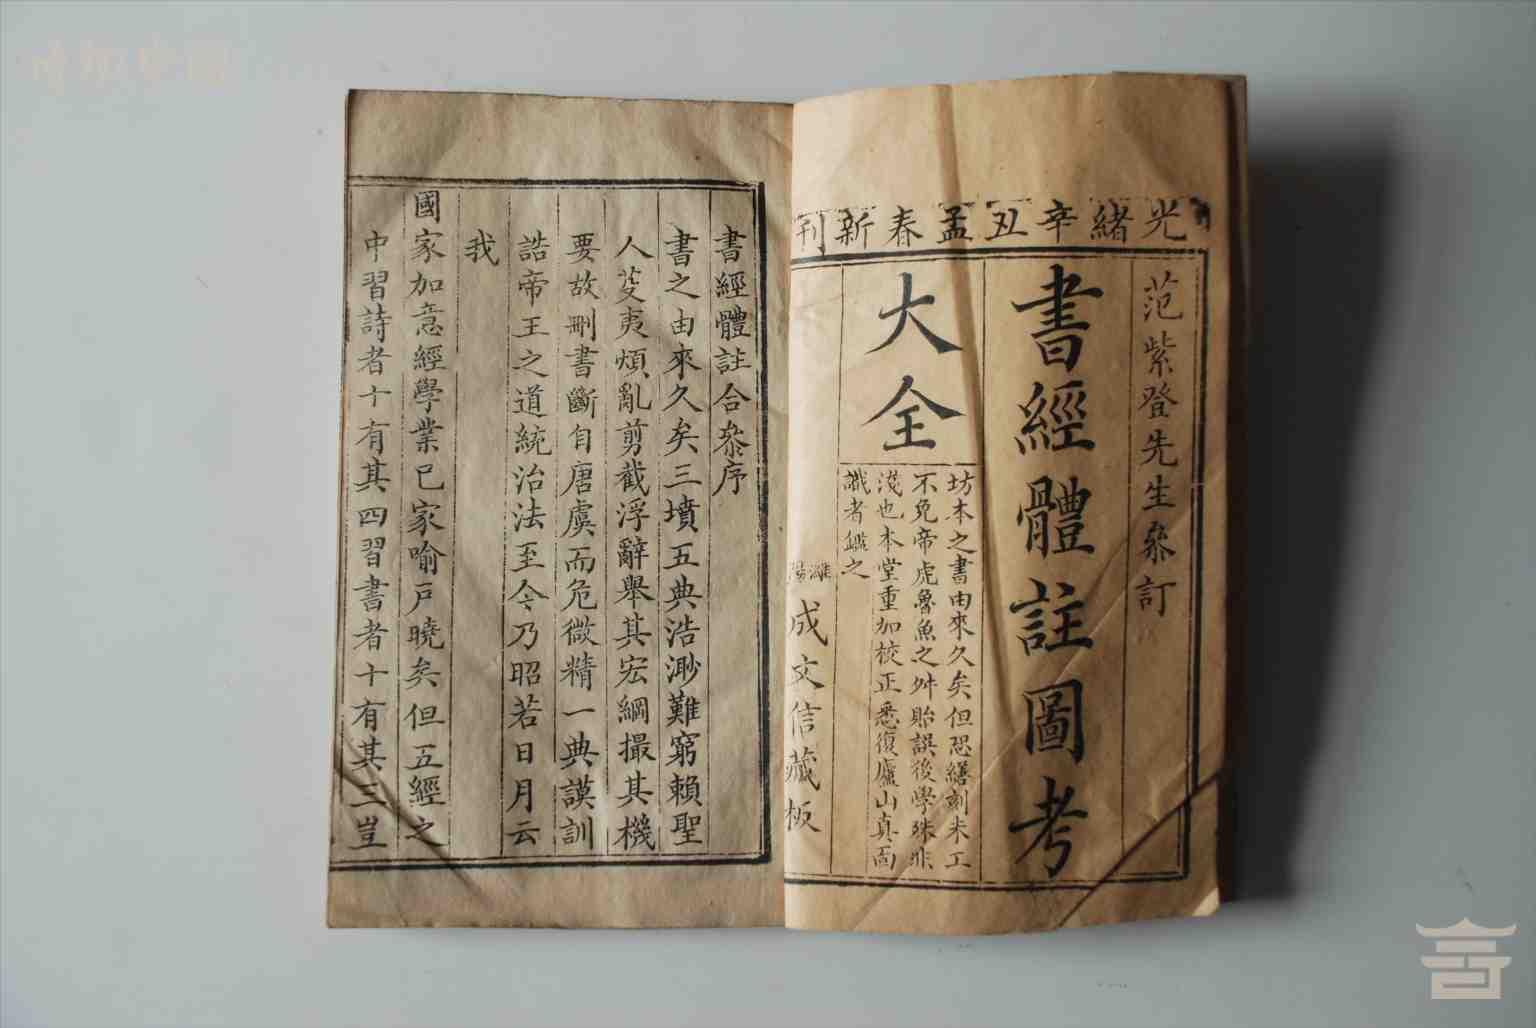 光緒辛丑孟春新刊
范紫登先生參訂
書經體註圖考
大全
坊本之書由來久矣但恐繕刻未工
不免帝虎魯魚之舛貽誤後學殊非
淺也本堂重加校正悉復廬山真面
識者鑑之
濰陽
成文信藏板
書經體註合參序
書之由來久矣三墳五典浩渺難窮賴聖
人芟夷煩亂剪截浮辭舉其宏綱撮其機
要故刪書斷自唐虞而危微精一典謨訓
誥帝王之道統治法至今乃昭若日月云
我
國家加意經學業已家喻戶曉矣但五經之
中習詩者十有其四習書者十有其三豈